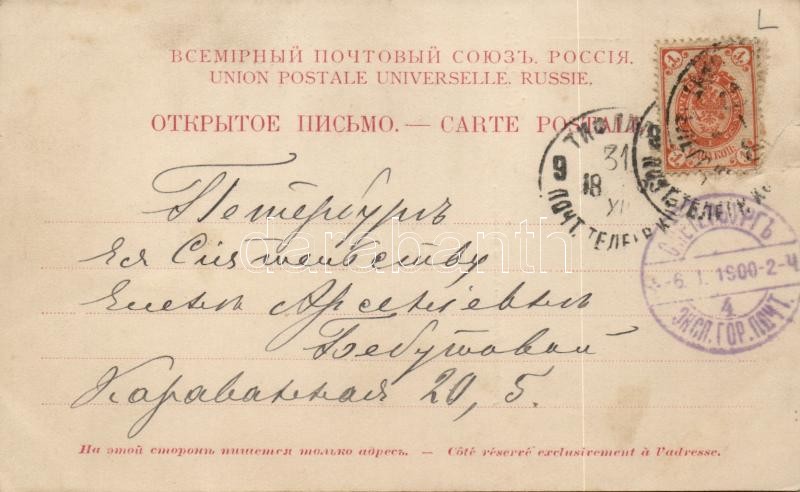 L
ВСЕМІРНЫЙ ПОЧТОВЫЙ СОЮЗЪ. РОССІЯ.
UNION POSTALE UNIVERSELLE. RUSSIE.
ОТКРЫТОЕ ПИСЬМО. — CARTE POSTALE
ТИФЛИС
9
31
18
XII
ПОЧТ. ТЕЛЕГР. К
С.ПЕТЕРБУРГЪ
-6. I. 1900-2-Ч
4
ЭКСП. ГОР. ПОЧТ.
Петербургъ
Ея Сіятельству
Еленѣ Арсеніевнѣ
Бебутовой
Караванная 20, 5.
darabanth
На этой сторонѣ пишется только адресъ. — Côté réservé exclusivement à l'adresse.